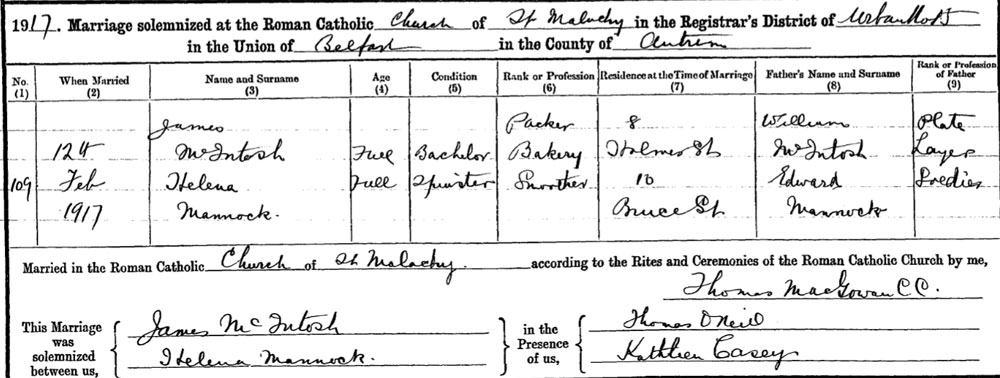 1917. Marriage solemnized at the Roman Catholic Church of St Malachy in the Registrar's District of Urban No 5
in the Union of Belfast in the County of Antrim
No. (1) When Married (2) Name and Surname (3) Age (4) Condition (5) Rank or Profession (6) Residence at the Time of Marriage (7) Father's Name and Surname (8) Rank or Profession of Father (9)
James Packer 8 William Plate
12th McIntosh Full Bachelor Bakery Holmes St McIntosh Layer
109 Feb Helena Full Spinster Smoother 10 Edward
1917 Mannock. Bruce St. Mannock
Married in the Roman Catholic Church of St Malachy. according to the Rites and Ceremonies of the Roman Catholic Church by me,
Thomas MacGowan C C.
This Marriage was solemnized between us,
James McIntosh
Helena Mannock.
in the Presence of us,
Thomas O'Neill
Kathleen Casey